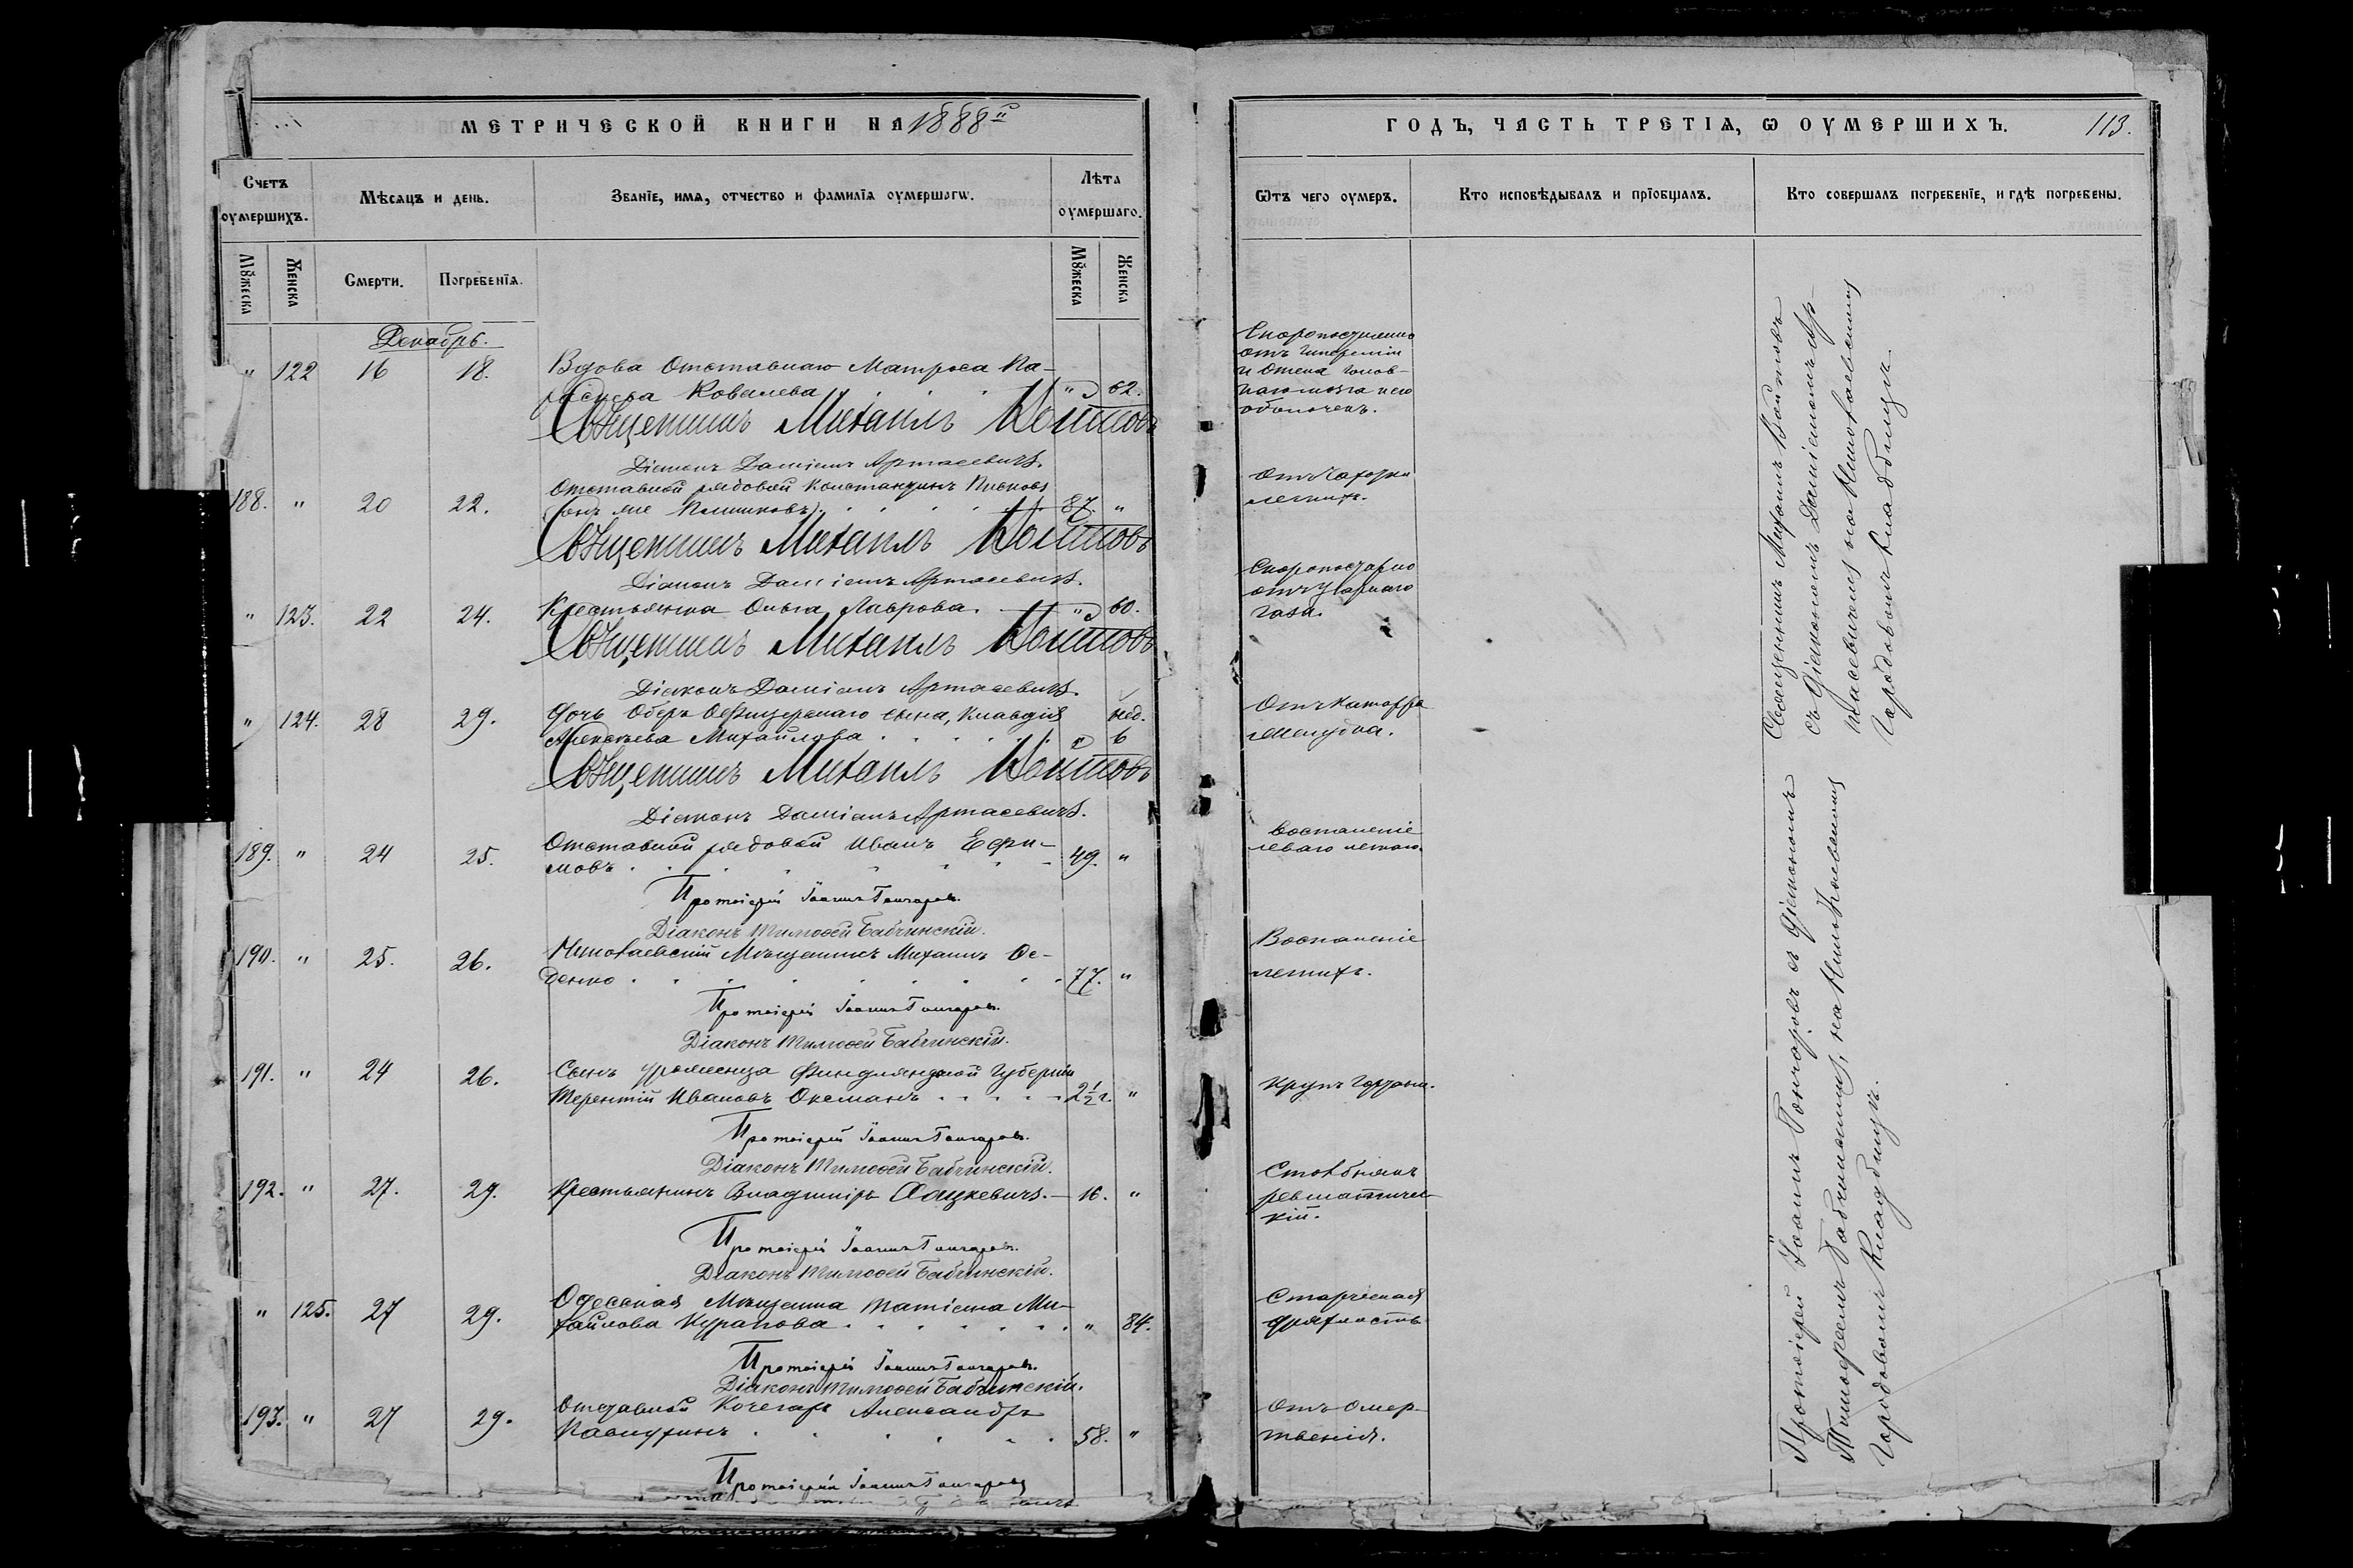 МЕТРИЧЕСКОЙ КНИГИ НА 1888й
Счетъ оумершихъ.
Мѣсяцъ и день.
Званіе, имя, отчество и фамилія оумершагѡ.
Лѣта оумершаго.
Мꙋжеска
Женска
Смерти.
Погребенія.
Мꙋжеска
Женска
Декабрь.
" 122 16 18. Вдова Отставнаго Матроса Па-
Ковалева " 62.
Священникъ Михаилъ
Діаконъ Даміанъ Артасевичъ.
188. " 20 22. Отставной рядовой Константинъ
(онъ же 87. "
Священникъ Михаилъ
Діаконъ Даміанъ Артасевичъ.
" 123. 22 24. Крестьянка Ольга Лаврова. " 60.
Священникъ Михаилъ
Діаконъ Даміанъ Артасевичъ.
" 124. 28 29. Дочь Оберъ Офицерскаго сына, Клавдія нед.
Алексѣева Михайлова " 6
Священникъ Михаилъ
Діаконъ Даміанъ Артасевичъ.
189. " 24 25. Отставной рядовой Иванъ Ефи-
мовъ 49. "
Протоіерей Іоаннъ Гончаровъ.
Діаконъ Тимоѳей Бабчинскій.
190. " 25. 26. Николаевскій Мѣщанинъ Михаилъ Ѳе-
денко 77. "
Протоіерей Іоаннъ Гончаровъ.
Діаконъ Тимоѳей Бабчинскій.
191. " 24 26. Сынъ уроженца Финдляндской Губерніи
Терентій Ивановъ Океманъ 2½ г. "
Протоіерей Іоаннъ Гончаровъ.
Діаконъ Тимоѳей Бабчинскій.
192. " 27. 29. Крестьянинъ Владиміръ 16. "
Протоіерей Іоаннъ Гончаровъ.
Діаконъ Тимоѳей Бабчинскій.
" 125. 27 29. Одесская Мѣщанка Татіана Ми-
хайлова Курапова " 84.
Протоіерей Іоаннъ Гончаровъ.
Діаконъ Тимоѳей Бабчинскій.
193. " 27 29. Отставной Кочегаръ Александръ
58. "
Протоіерей Іоаннъ Гончаровъ
ГОДЪ, ЧАСТЬ ТРЕТІѦ, Ѡ ОУМЕРШИХЪ. 113.
Ѿтъ чего оумеръ.
Кто исповѣдывалъ и пріобщалъ.
Кто совершалъ погребеніе, и гдѣ погребены.
Скоропостижно
отъ гипереміи
и отека голов-
наго мозга и его
оболочекъ.
Отъ Чахотки
легкихъ.
отъ Угарнаго
газа.
Отъ катарра
желудка.
Воспаленіе
леваго легкаго.
Воспаленіе
легкихъ.
Крупъ гортани.
Столбнякъ
ревматичес-
кій.
Старческая
дряхлость
Отъ омер-
твенія.
Священникъ Михаилъ
съ Діакономъ Даміаномъ Ар-
тасевичемъ на Николаевскомъ
Городовомъ Кладбищѣ.
Протоіерей Іоаннъ Гончаровъ съ Діакономъ
Тимофеемъ Бабчинскимъ, на Николаевскомъ
Городовомъ Кладбищѣ.